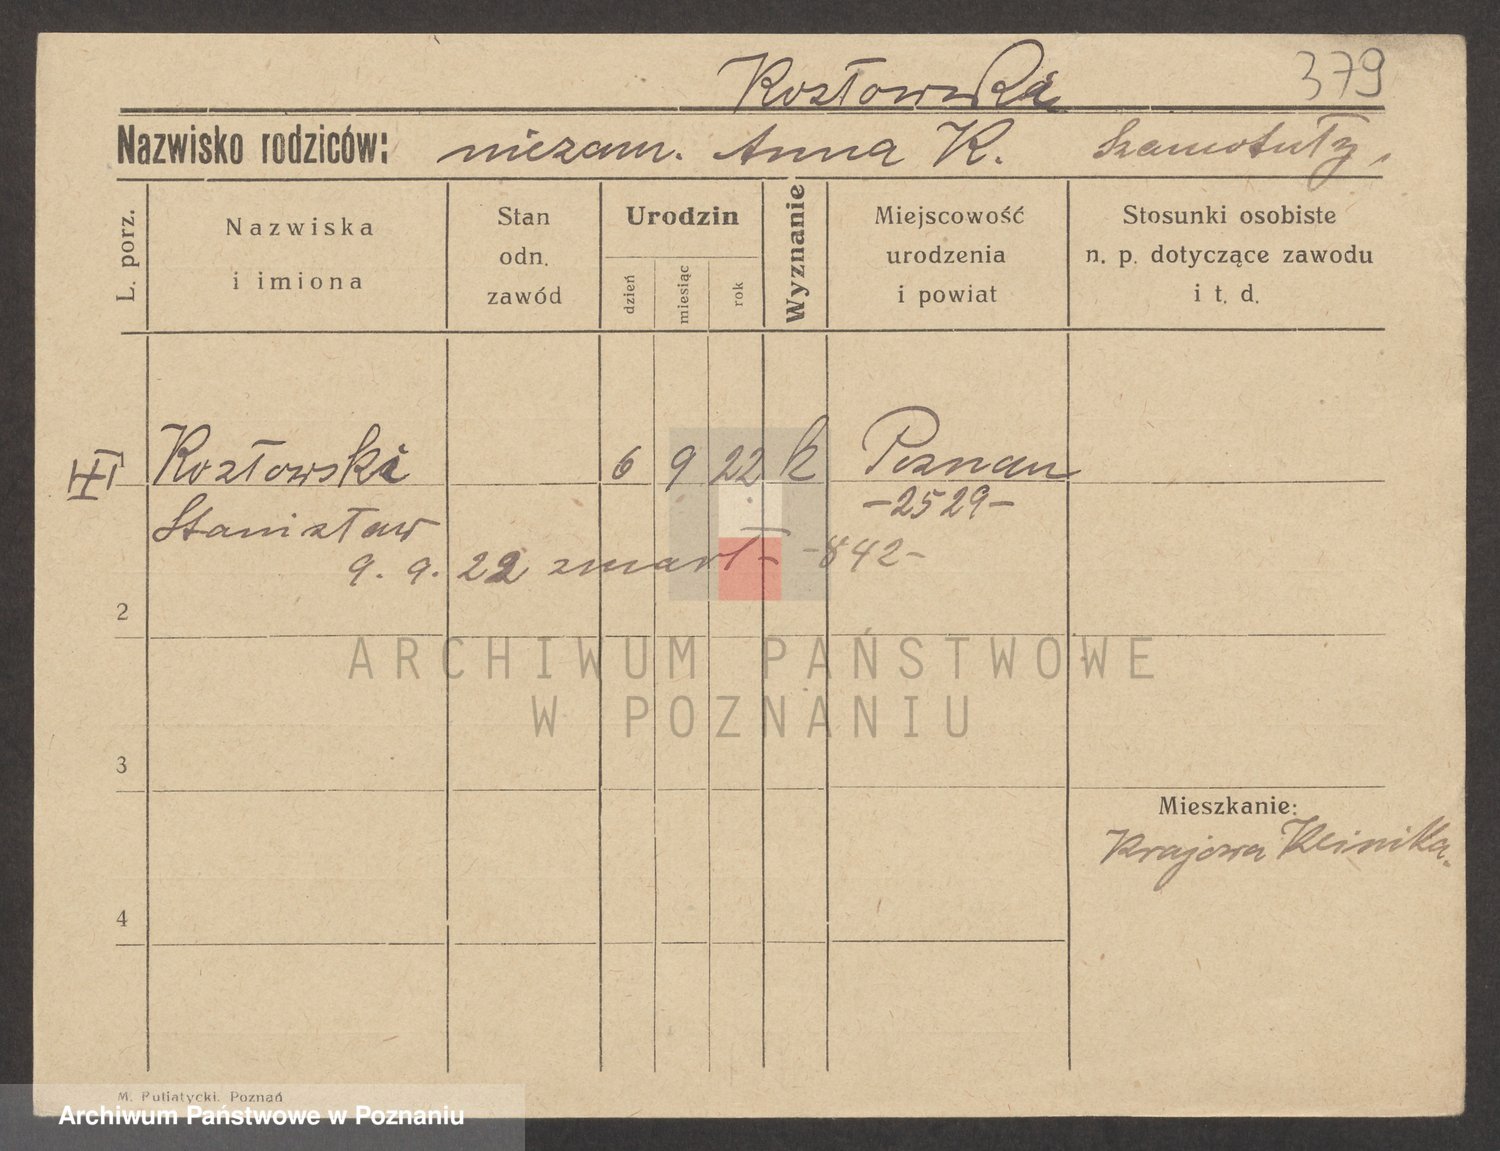 Kozłowska
379
Nazwisko rodziców: niezam. Anna K. Szamotuły,
L. porz.
Nazwiska
i imiona
Stan
odn.
zawód
Urodzin
dzień
miesiąc
rok
Wyznanie
Miejscowość
urodzenia
i powiat
Stosunki osobiste
n. p. dotyczące zawodu
i t. d.
Kozłowski 6 9 22 k Poznań
Stanisław -2529-
9. 9. 22 zmarł -842-
2
ARCHIWUM PAŃSTWOWE
W POZNANIU
3
Mieszkanie:
Krajowa Klinika.
4
M. Putiatycki. Poznań
Archiwum Państwowe w Poznaniu